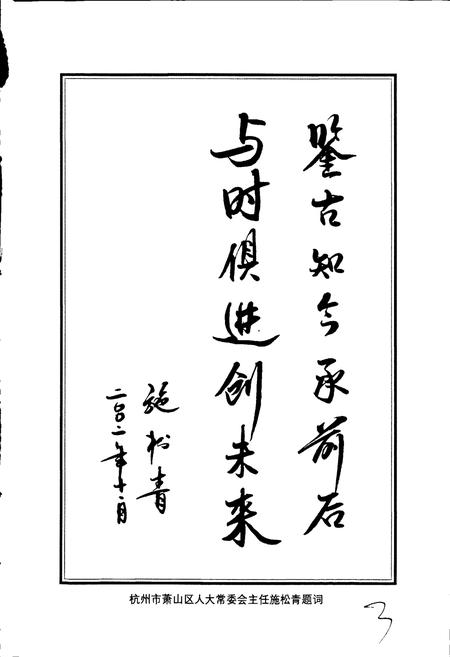 鉴古知今承前后
与时俱进创未来
施松青
二00二年十二月
杭州市萧山区人大常委会主任施松青题词
3